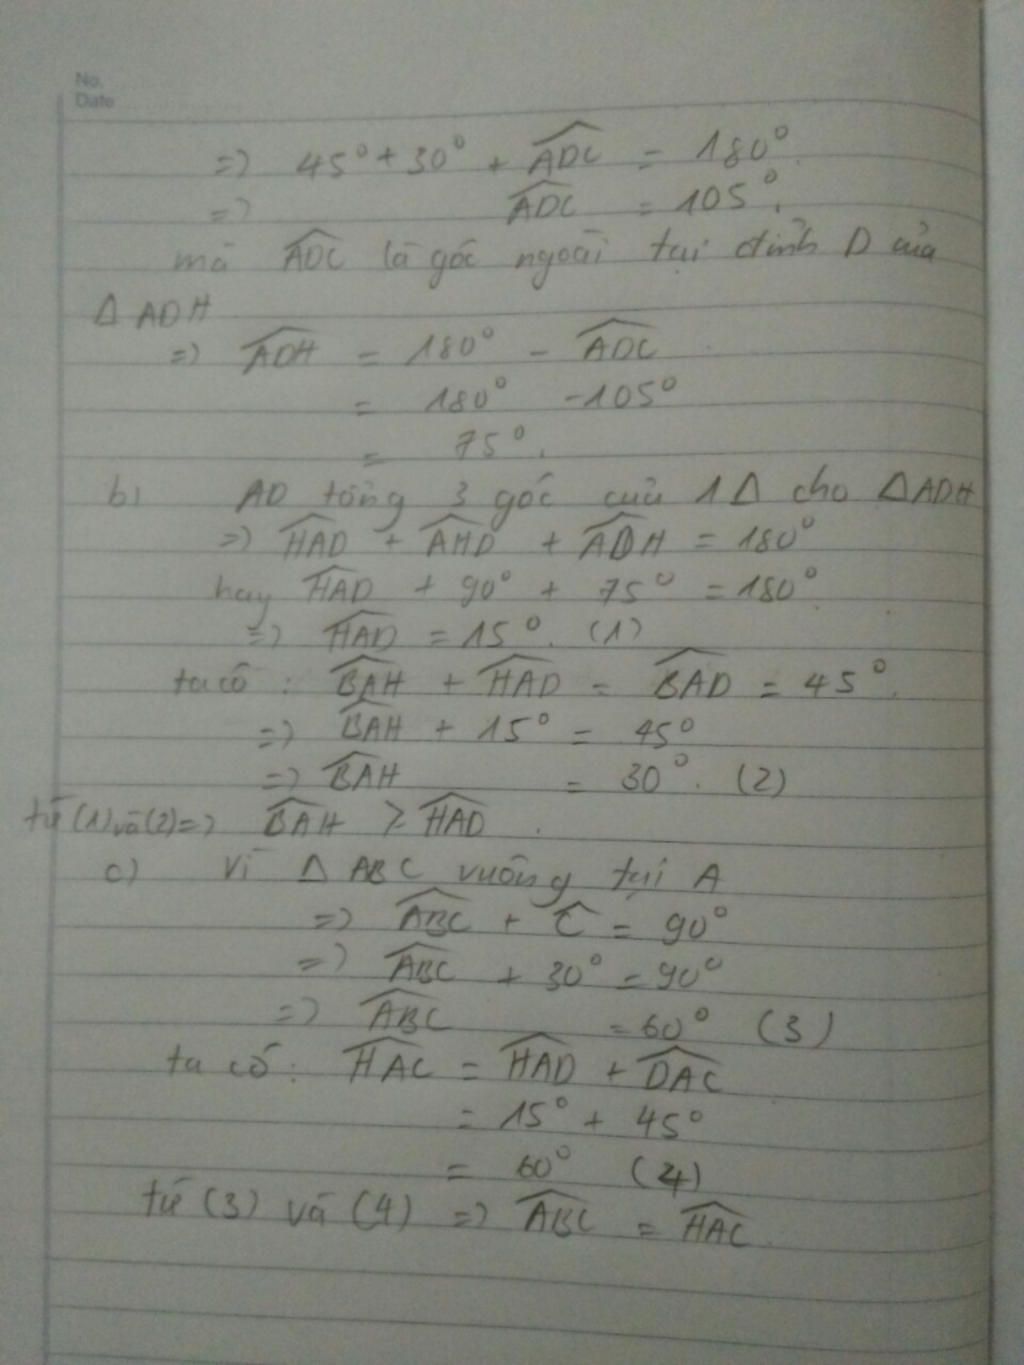 No.
Date
=) 45° + 30° + ADC = 180°.
=) ADC = 105°.
mà ADC là góc ngoài tại đỉnh D của
Δ ADH
=) ADH = 180° - ADC
= 180° - 105°
= 75°.
b) AD tổng 3 góc của 1Δ cho ΔADH
=) HAD + AHD + ADH = 180°
hay HAD + 90° + 75° = 180°
=) HAD = 15°. (1)
ta có : BAH + HAD = BAD = 45°.
=) BAH + 15° = 45°
=) BAH = 30°. (2)
từ (1) và (2) =) BAH > HAD .
c) Vì Δ ABC vuông tại A
=) ABC + C = 90°
=) ABC + 30° = 90°
=) ABC = 60° (3)
ta có : HAC = HAD + DAC
= 15° + 45°
= 60° (4)
từ (3) và (4) =) ABC = HAC.